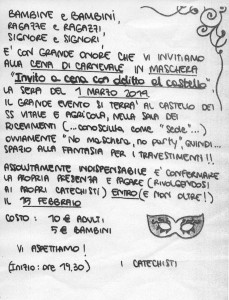 BAMBINE e BAMBINI,
RAGAZZE e RAGAZZI,
SIGNORE e SIGNORI,
E' CON GRANDE ONORE CHE VI INVITIAMO
ALLA CENA DI CARNEVALE IN MASCHERA
"Invito a cena con delitto al castello"
LA SERA DEL 1 MARZO 2014
IL GRANDE EVENTO SI TERRA' AL CASTELLO DEI
SS VITALE E AGRICOLA, NELLA SALA DEI
RICEVIMENTI (...CONOSCIUTA COME "SEDE"...)
OVVIAMENTE "No maschera, no party", QUINDI...
SPAZIO ALLA FANTASIA PER I TRAVESTIMENTI!!
ASSOLUTAMENTE INDISPENSABILE E' CONFERMARE
LA PROPRIA PRESENZA E PAGARE (RIVOLGENDOSI
AI PROPRI CATECHISTI) ENTRO (E NON OLTRE!)
IL FEBBRAIO
COSTO: 10 € ADULTI
5 € BAMBINI
VI ASPETTIAMO!
(INIZIO: ORE 19,30)
I CATECHISTI